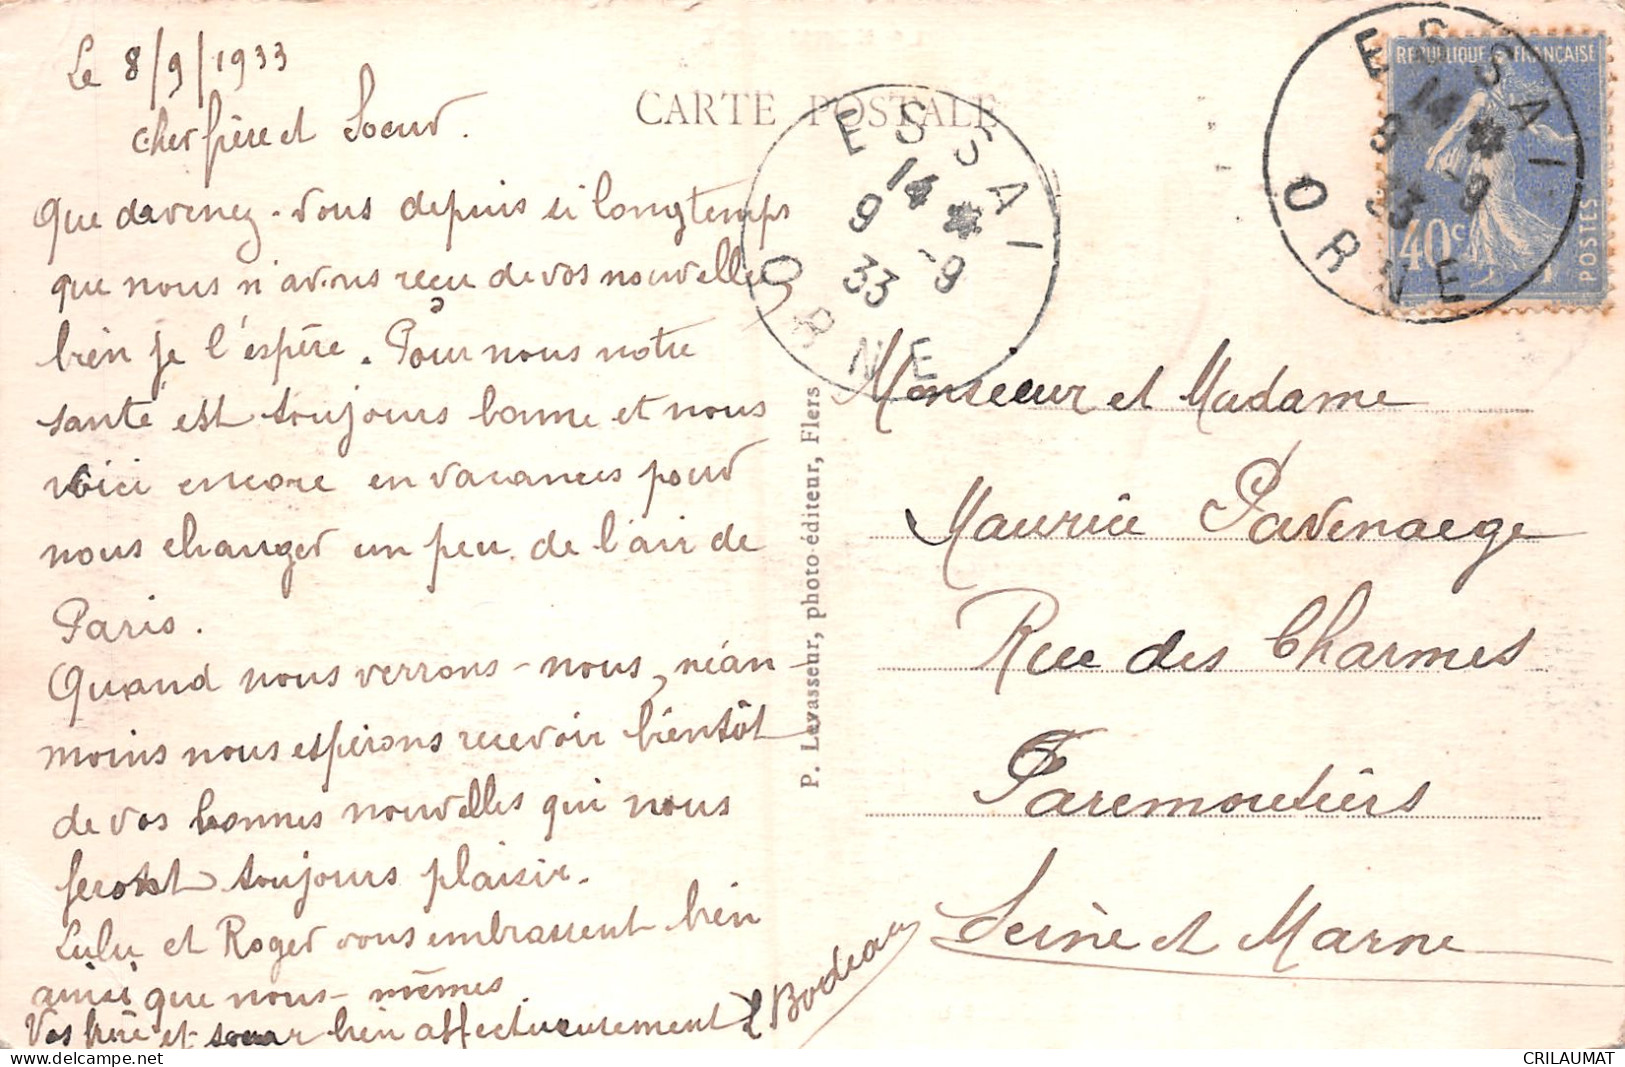 Le 8/9/1933
Cher frère et Soeur.
Que davenez-vous depuis si longtemps
que nous n'avons reçu de vos nouvelles
bien je l'espère. Pour nous notre
santé est toujours bonne et nous
voici encore en vacances pour
nous changer un peu de l'air de
Paris.
Quand nous verrons-nous, néan-
moins nous espérons recevoir bientôt
de vos bonnes nouvelles qui nous
feront toujours plaisir.
Lulu et Roger vous embrassent bien
ainsi que nous-mêmes.
Vos frère et soeur bien affectueusement
Bodeau
CARTE POSTALE
P. Levasseur, photo-éditeur, Flers
ESSAI
14 *
9 -9
33
ORNE
ESSAI
14 *
9 -9
33
ORNE
REPUBLIQUE FRANÇAISE
40c
POSTES
Monsieur et Madame
Maurice Pavenaege
Rue des Charmes
Faremoutiers
Seine et Marne
CRILAUMAT